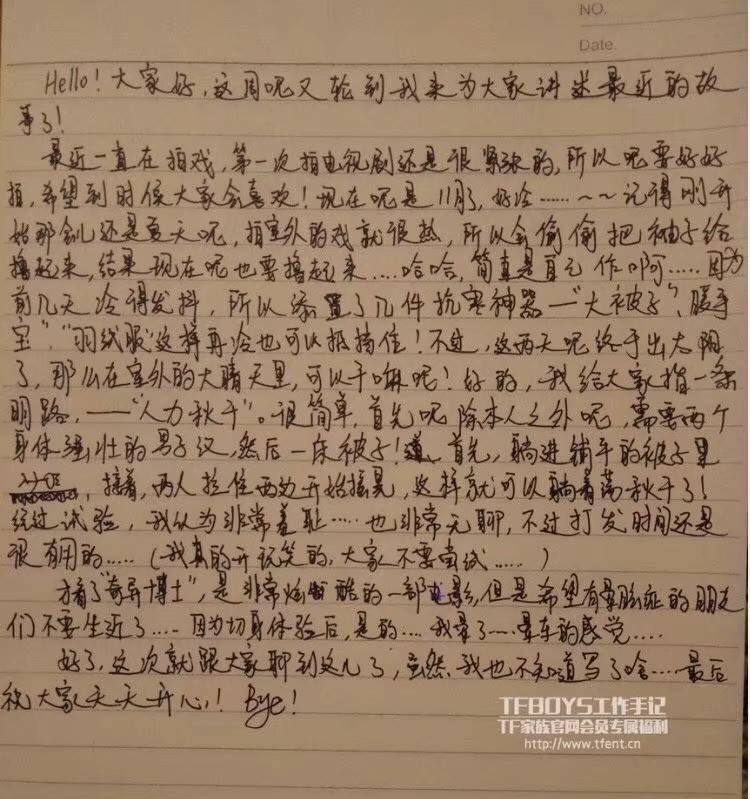 NO.
Date.
Hello！大家好，这周呢又轮到我来为大家讲述最近的故
事了！
最近一直在拍戏，第一次拍电视剧还是很紧张的，所以呢要好好
拍，希望到时候大家会喜欢！现在呢是11月了，好冷……～～记得刚开
始那会儿还是夏天呢，拍室外的戏就很热，所以会偷偷把袖子给
撸起来，结果现在呢也要撸起来....哈哈，简直是自己作啊.....因为
前几天冷得发抖，所以添置了几件抗寒神器—“大被子”、暖手
宝”、“羽绒服”这样再冷也可以抵挡住！不过，这两天呢终于出太阳
了，那么在室外的大晴天里，可以干嘛呢！好的，我给大家指一条
明路，——“人力秋千”。很简单，首先呢除本人之外呢，需要两个
身体强壮的男子汉，然后一床被子！首先，躺进铺平的被子里
，接着，两人拉住两边开始摇晃，这样就可以躺着荡秋千了！
经过试验，我认为非常羞耻.....也非常无聊，不过打发时间还是
很有用的.....（我真的开玩笑的，大家不要当纸.....）
才看了“奇异博士”，是非常炫酷的一部电影，但是希望有晕眩症的朋友
们不要坐近了....因为切身体验后，是的....我晕了...晕车的感觉....
好了，这次就跟大家聊到这儿了，虽然我也不知道写了啥....最后
祝大家天天开心！Bye！
TFBOYS工作手记
TF家族官网会员专属福利
http://www.tfent.cn